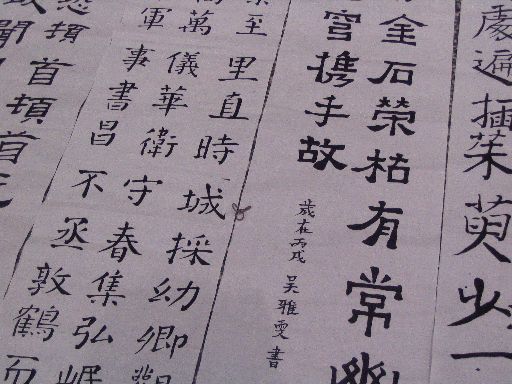 處遍插茱萸少一
金石榮枯有常幽
宮携手故
歲在丙戌吳雅雯書
至里直時城採幼卿
萬儀華衛守春集弘
軍事書昌不丞敦鶴而
頓首頓首